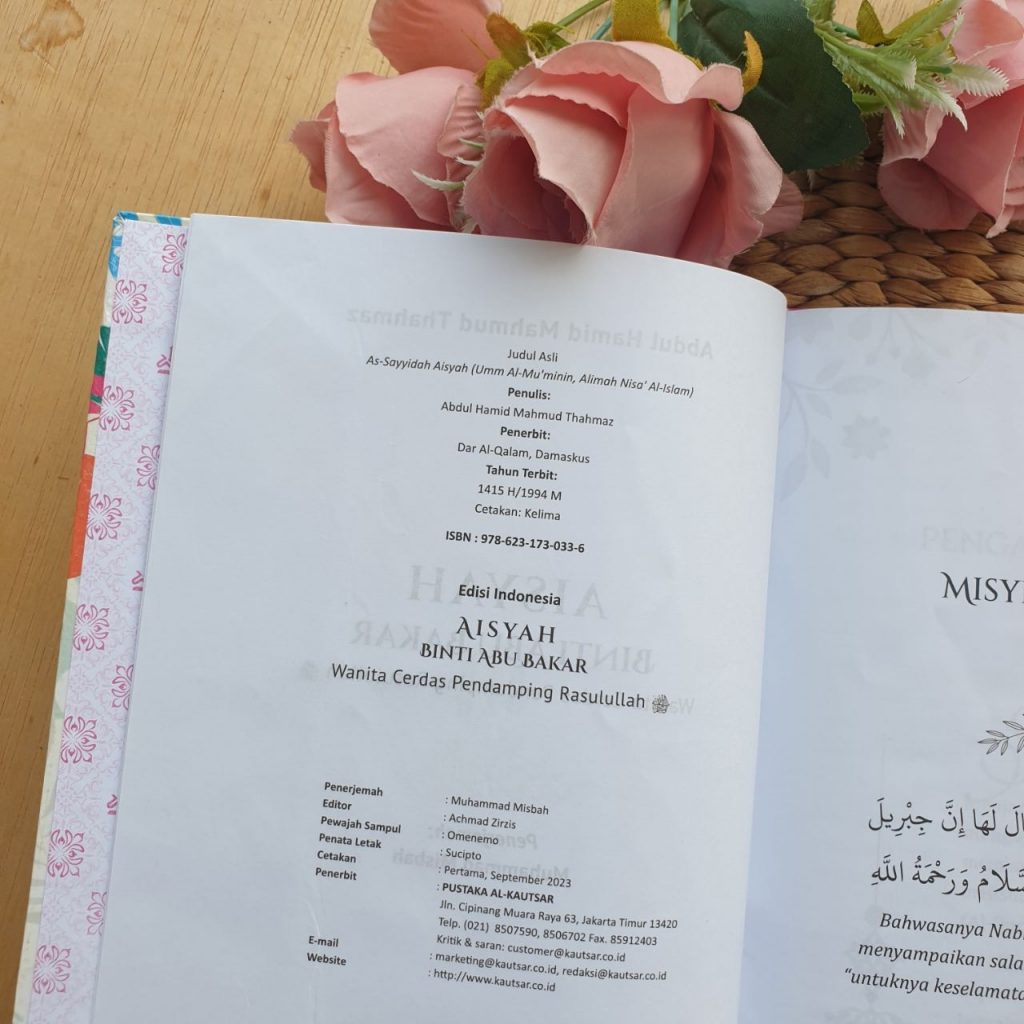 Judul Asli
As-Sayyidah Aisyah (Umm Al-Mu'minin, Alimah Nisa' Al-Islam)
Penulis:
Abdul Hamid Mahmud Thahmaz
Penerbit:
Dar Al-Qalam, Damaskus
Tahun Terbit:
1415 H/1994 M
Cetakan: Kelima
ISBN : 978-623-173-033-6
Edisi Indonesia
AISYAH
BINTI ABU BAKAR
Wanita Cerdas Pendamping Rasulullah ﷺ
Penerjemah : Muhammad Misbah
Editor : Achmad Zirzis
Pewajah Sampul : Omenemo
Penata Letak : Sucipto
Cetakan : Pertama, September 2023
Penerbit : PUSTAKA AL-KAUTSAR
Jln. Cipinang Muara Raya 63, Jakarta Timur 13420
Telp. (021) 8507590, 8506702 Fax. 85912403
Kritik & saran: customer@kautsar.co.id
E-mail : marketing@kautsar.co.id, redaksi@kautsar.co.id
Website : http://www.kautsar.co.id
MISY
لَهَا إِنَّ جِبْرِيلَ
وَرَحْمَةُ اللَّهِ
Bahwasanya Nab
menyampaikan sala
"untuknya keselamata